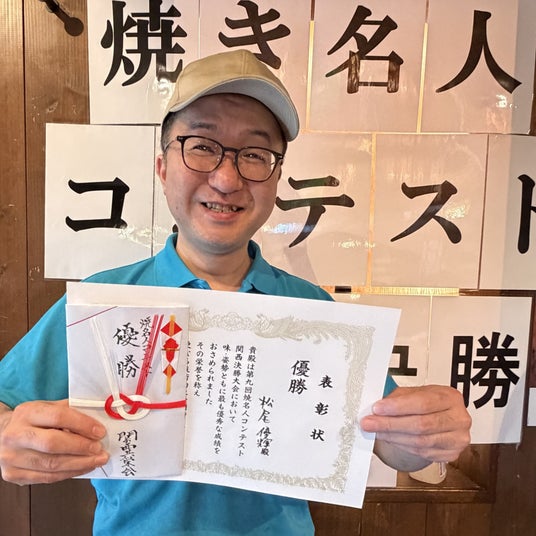 焼き名人
コンテスト
勝
表彰状
優勝
松尾 倖輝殿
貴殿は第九回焼名人コンテスト
関西決勝大会において
味・姿勢ともに最も優秀な成績を
おさめられました
その栄誉を称え
焼名人コンテスト
優勝